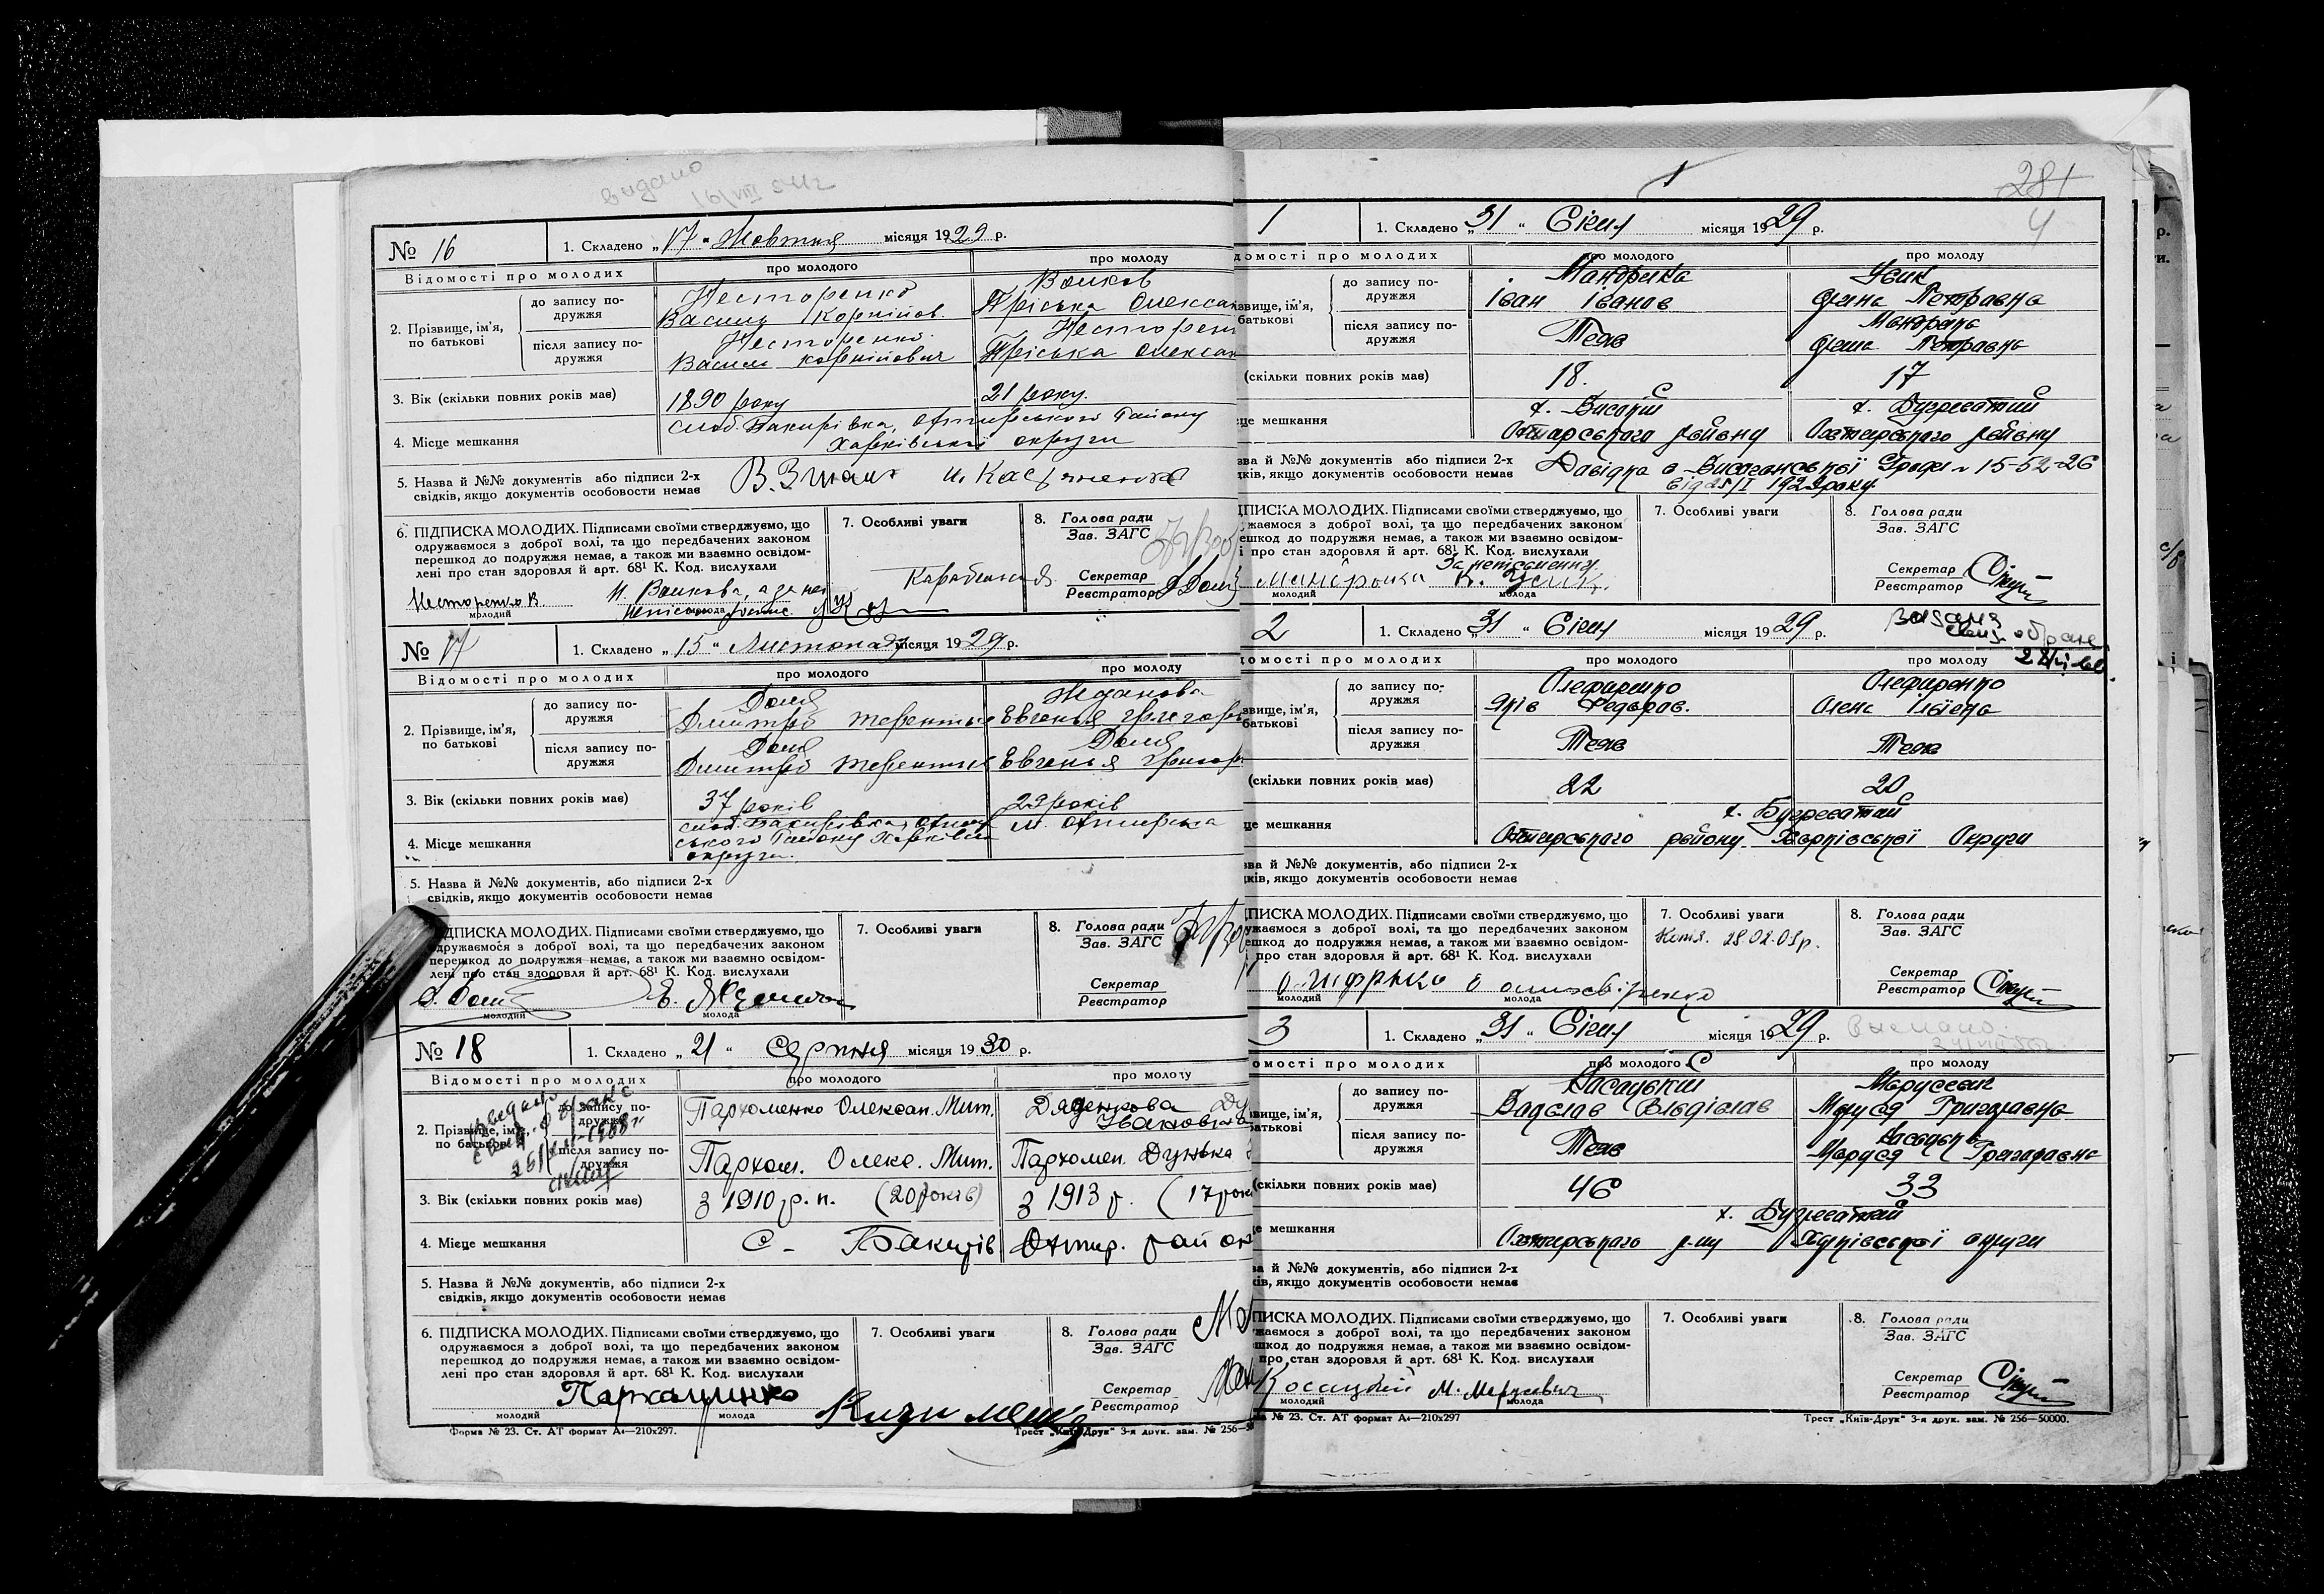 видано
№ 16
1. Складено „17“ Жовтня місяця 1929 р.
Відомості про молодих
про молодого
про молоду
2. Прізвище, ім'я, по батькові
до запису по-
дружжя
Несторенко
Василь Корнійов.
Волков
Пріська Олекса
після запису по-
дружжя
Несторенко
Василь Корнійович
Несторен
Пріська Олекса
3. Вік (скільки повних років має)
1890 року
21 року.
4. Місце мешкання
слоб. Бакирівка, Охтирського Району
Харківської округи
5. Назва й №№ документів або підписи 2-х
свідків, якщо документів особовости немає
6. ПІДПИСКА МОЛОДИХ. Підписами своїми стверджуємо, що
одружаємося з доброї волі, та що передбачених законом
перешкод до подружжя немає, а також ми взаємно освідом-
лені про стан здоровля й арт. 68¹ К. Код. вислухали
Несторенко В.
молодий
молода
7. Особливі уваги
8. Голова ради
Зав. ЗАГС
Секретар
Реєстратор
№ 17
1. Складено „15“ Листопада місяця 1929 р.
Відомості про молодих
про молодого
про молоду
2. Прізвище, ім'я,
по батькові
до запису по-
дружжя
Доля
Дмитро Терентьє
Жданова
Евгенья Григорь
після запису по-
дружжя
Доля
Дмитро Терентьє
Доля
Евгенья Григорь
3. Вік (скільки повних років має)
37 років
29 років
4. Місце мешкання
слоб. Бакирівка, Охтир
ського Району Харківськ
округи.
м. Охтирка
5. Назва й №№ документів, або підписи 2-х
свідків, якщо документів особовости немає
ДПИСКА МОЛОДИХ. Підписами своїми стверджуємо, що
дружаємося з доброї волі, та що передбачених законом
перешкод до подружжя немає, а також ми взаємно освідом-
лені про стан здоровля й арт. 68¹ К. Код. вислухали
молодий
молода
7. Особливі уваги
8. Голова ради
Зав. ЗАГС
Секретар
Реєстратор
№ 18
1. Складено „21“ Серпня місяця 1930 р.
Відомості про молодих
про молодого
про молоду
2. Прізвище, ім'я,
по батькові
до запису по-
дружжя
Пархоменко Олексан. Мит.
Дяденкова
Іванов
після запису по-
дружжя
Пархом. Олекс. Мит.
Пархомен. Дунька
3. Вік (скільки повних років має)
з 1910 р. н. (20 років)
з 1913 р. (17 рок
4. Місце мешкання
с - Бакирів
Охтир. район
5. Назва й №№ документів, або підписи 2-х
свідків, якщо документів особовости немає
6. ПІДПИСКА МОЛОДИХ. Підписами своїми стверджуємо, що
одружаємося з доброї волі, та що передбачених законом
перешкод до подружжя немає, а також ми взаємно освідом-
лені про стан здоровля й арт. 68¹ К. Код. вислухали
молодий
молода
7. Особливі уваги
8. Голова ради
Зав. ЗАГС
Секретар
Реєстратор
Форма № 23. Ст. АТ формат А₄—210х297.
Трест „Київ-Друк“ 3-я друк. зам. № 256—50
281
4
1
1. Складено „31“ Січня місяця 1929 р.
домості про молодих
про молодого
про молоду
звище, ім'я,
батькові
до запису по-
дружжя
Мандрика
Іван Іванов
Усик
Петравна
після запису по-
дружжя
Теж
Мандрика
Петравна
(скільки повних років має)
18.
17
це мешкання
х. Високий
Охтирського району
х. Бугреватий
Охтирського району
зва й №№ документів або підписи 2-х
дків, якщо документів особовости немає
Давідка 15-52-26
від 25/I 1929 року
ДПИСКА МОЛОДИХ. Підписами своїми стверджуємо, що
жаємося з доброї волі, та що передбачених законом
ешкод до подружжя немає, а також ми взаємно освідом-
і про стан здоровля й арт. 68¹ К. Код. вислухали
молодий
молода
7. Особливі уваги
8. Голова ради
Зав. ЗАГС
Секретар
Реєстратор
2
1. Складено „31“ Січня місяця 1929 р.
домості про молодих
про молодого
про молоду
звище, ім'я,
батькові
до запису по-
дружжя
Олефиренко
Яків Федоров.
Олефиренко
Олена
після запису по-
дружжя
Теж
Теж
(скільки повних років має)
22
20
це мешкання
х. Бугреватий
Охтирського району Харківської Округи
зва й №№ документів, або підписи 2-х
дків, якщо документів особовости немає
ДПИСКА МОЛОДИХ. Підписами своїми стверджуємо, що
ужаємося з доброї волі, та що передбачених законом
ешкод до подружжя немає, а також ми взаємно освідом-
і про стан здоровля й арт. 68¹ К. Код. вислухали
молодий
молода
7. Особливі уваги
Копія. 28.02.03р.
8. Голова ради
Зав. ЗАГС
Секретар
Реєстратор
3
1. Складено „31“ Січня місяця 1929 р.
омості про молодих
про молодого
про молоду
звище, ім'я,
батькові
до запису по-
дружжя
Касацький
Марусевич
Маруся Григоравна
після запису по-
дружжя
Теж
Маруся Григоравна
(скільки повних років має)
46
33
це мешкання
х. Бугреватий
Охтирського р-ну Харківської округи
ва й №№ документів, або підписи 2-х
ків, якщо документів особовости немає
ПИСКА МОЛОДИХ. Підписами своїми стверджуємо, що
жаємося з доброї волі, та що передбачених законом
шкод до подружжя немає, а також ми взаємно освідом-
про стан здоровля й арт. 68¹ К. Код. вислухали
Косацкий М. Марусевич
молодий
молода
7. Особливі уваги
8. Голова ради
Зав. ЗАГС
Секретар
Реєстратор
ма № 23. Ст. АТ формат А₄—210х297
Трест „Київ-Друк“ 3-я друк. зам. № 256—50000.